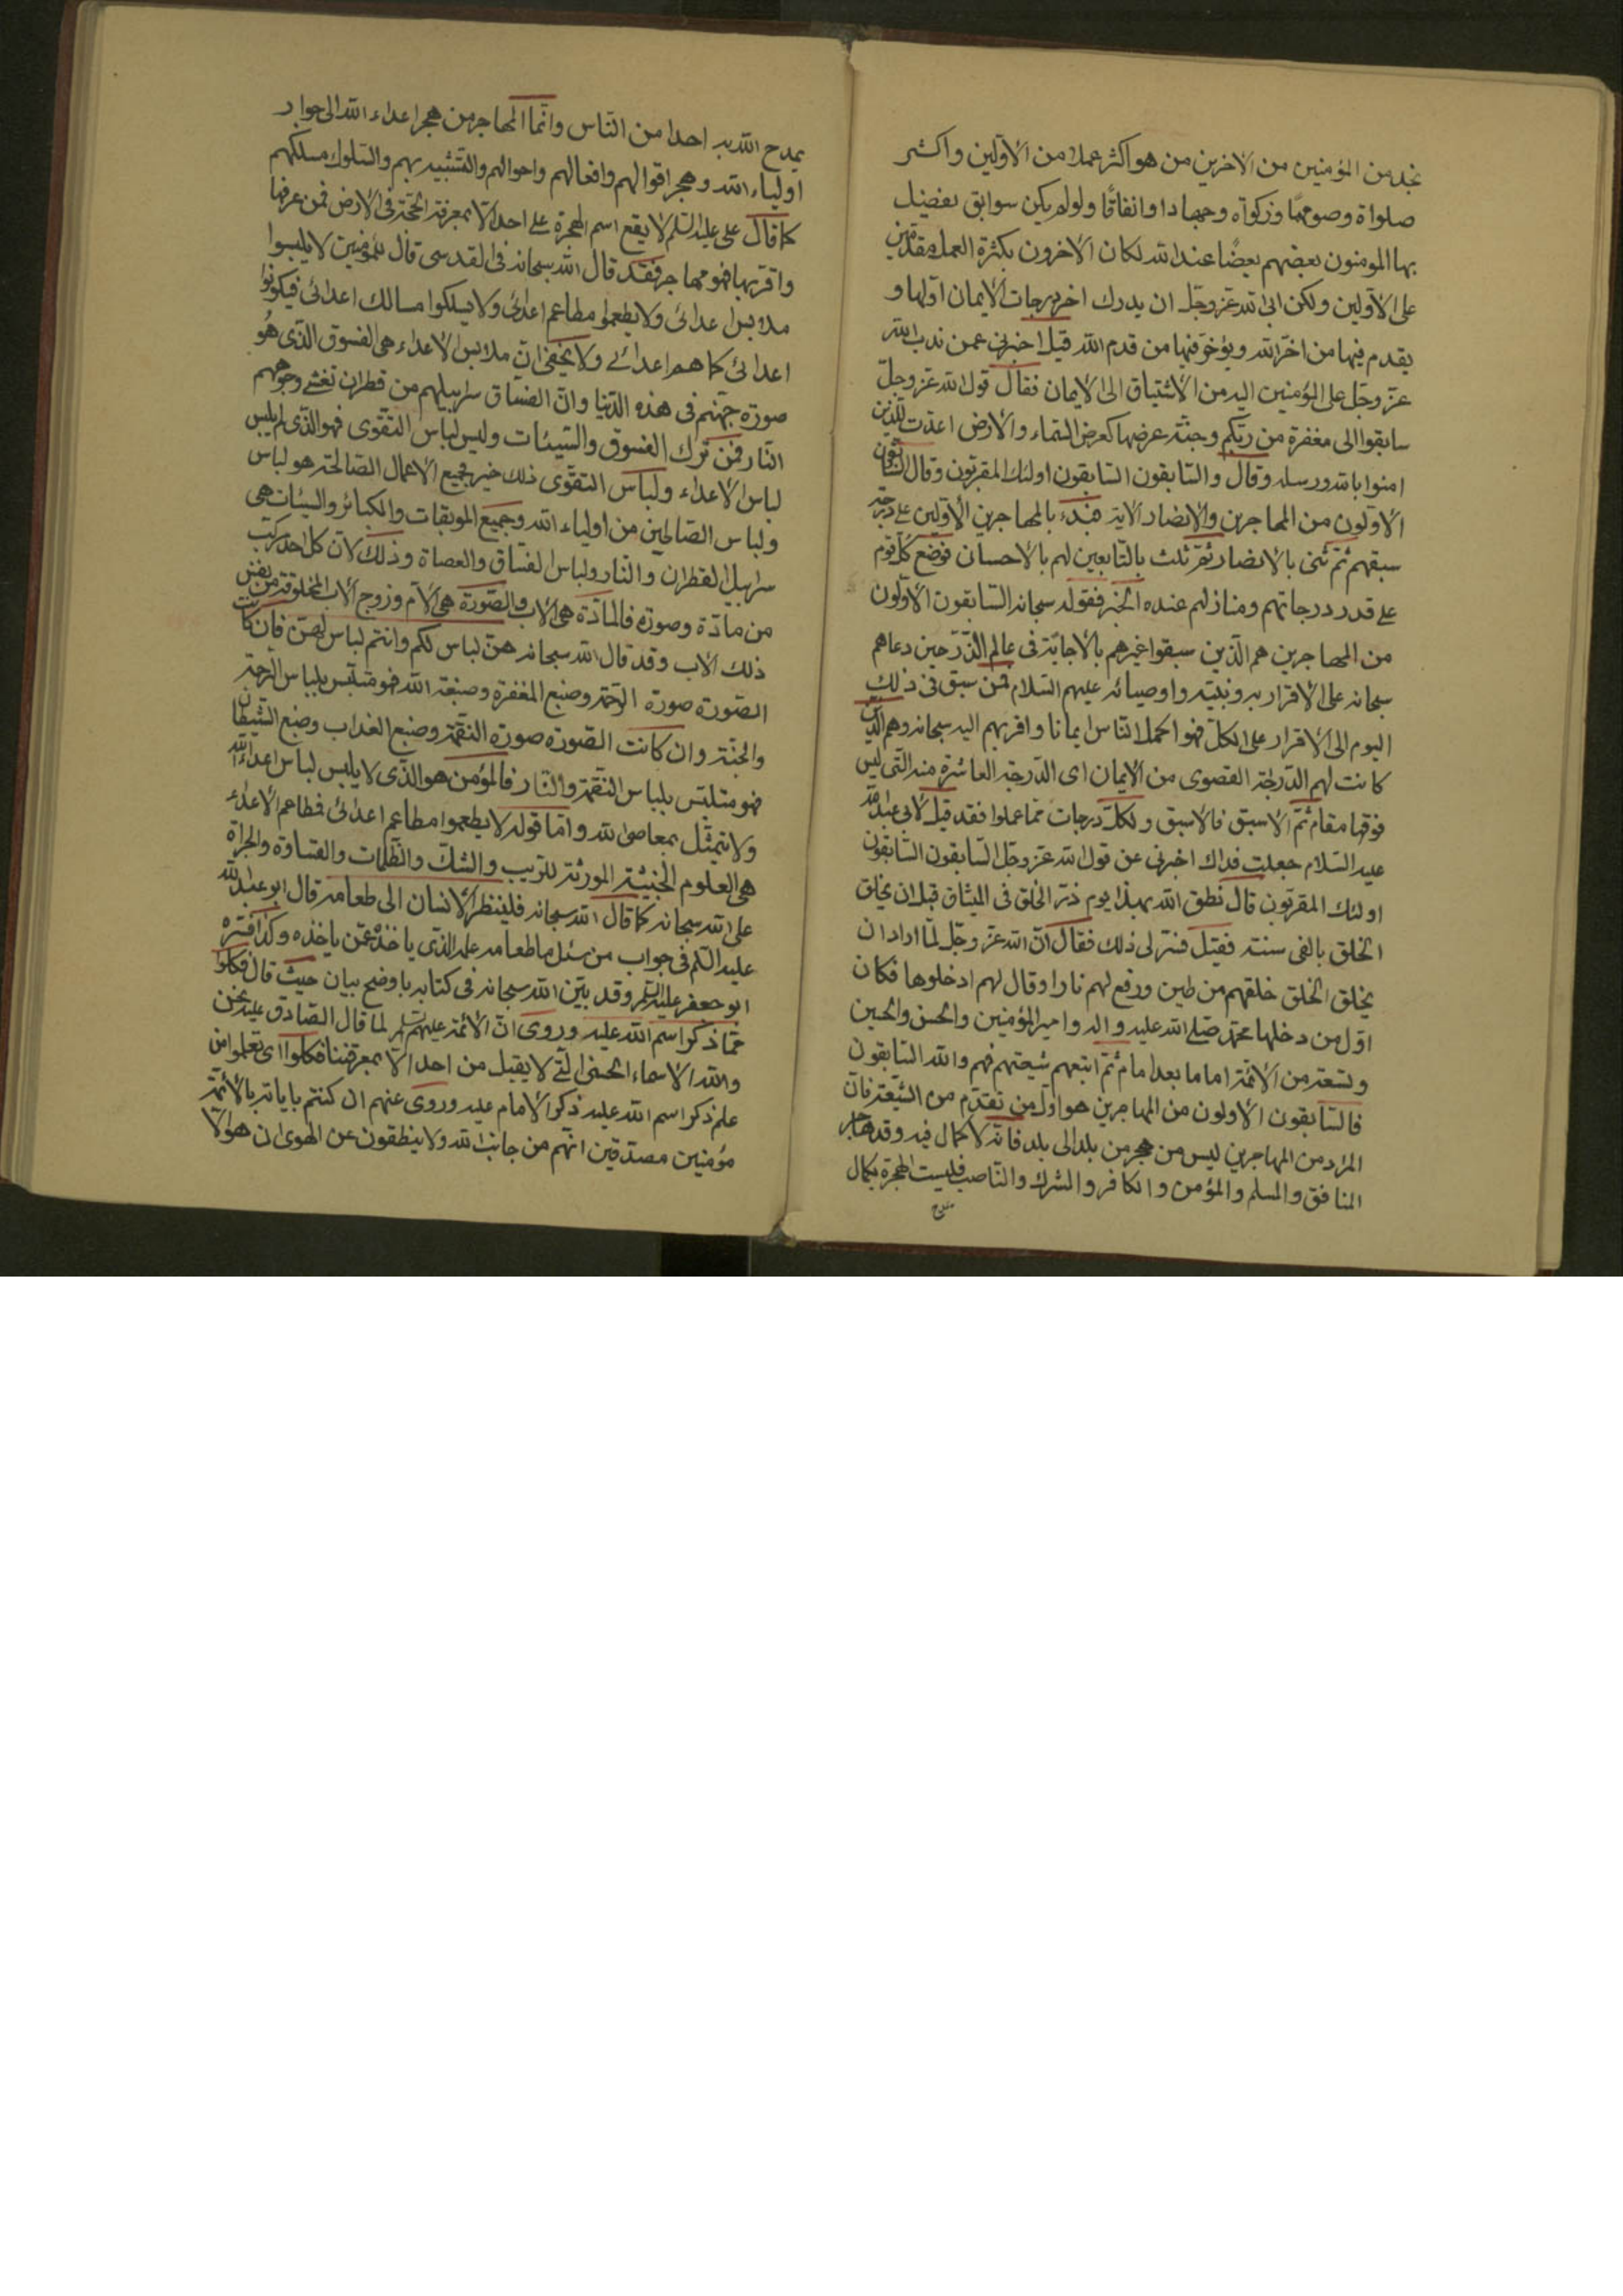 نجد من المؤمنين من الاخرين من هو اكثر عملا من الاولين واكثر
صلواة وصوما وزكواة وجهادا وانفاقا ولو لم يكن سوابق يفضل
بها المومنون بعضهم بعضا عند الله لكان الاخرون بكثرة العمل مقدمين
على الاولين ولكن ابى الله عز وجل ان يدرك اخر درجات الايمان اولها و
يقدم فيها من اخر الله ويؤخر فيها من قدم الله قيل اخبرنى عمن ندب الله
عز وجل على المؤمنين اليه من الاشتياق الى الايمان فقال قول الله عز وجل
سابقوا الى مغفرة من ربكم وجنة عرضها كعرض السماء والارض اعدت للذين
امنوا بالله ورسله وقال والسابقون السابقون اولئك المقربون وقال السابقون
الاولون من المهاجرين والانصار الاية فبدء بالمهاجرين الاولين على درجة
سبقهم ثم ثنى بالانصار ثم ثلث بالتابعين لهم بالاحسان فوضع كل قوم
على قدر درجاتهم ومنازلهم عنده الخبر فقوله سبحانه السابقون الاولون
من المهاجرين هم الذين سبقوا غيرهم بالاجابة فى عالم الذر حين دعاهم
سبحانه على الاقرار به ونبيه واوصيائه عليهم السلام فمن سبق فى ذلك
اليوم الى الاقرار على الكل فهو اكمل الناس ايمانا واقربهم اليه سبحانه وهم الذين
كانت لهم الدرجة القصوى من الايمان اى الدرجة العاشرة منه التى ليس
فوقها مقام ثم الاسبق فالاسبق ولكل درجات مما عملوا فقد قيل لابى عبدالله
عليه السلام جعلت فداك اخبرنى عن قول الله عز وجل السابقون السابقون
اولئك المقربون قال نطق الله بهذا يوم ذرء الخلق فى الميثاق قبل ان يخلق
الخلق بالفى سنة فقيل فسر لى ذلك فقال ان الله عز وجل لما اراد ان
يخلق الخلق خلقهم من طين ورفع لهم نارا وقال لهم ادخلوها فكان
اول من دخلها محمد صلى الله عليه واله وامير المؤمنين والحسن والحسين
وتسعة من الائمة اماما بعد امام ثم اتبعهم شيعتهم فهم والله السابقون
فالسابقون الاولون من المهاجرين هو اول من تقدم من الشيعة فان
المراد من المهاجرين ليس من هجر من بلد الى بلد فانه لا كمال فيه وقد هاجر
المنافق والمسلم والمؤمن والكافر والشرك والناصب فليست الهجرة بكمال
يمدح الله به احدا من الناس وانما المهاجر من هجر اعداء الله الى جوار
اولياء الله وهجر اقوالهم وافعالهم واحوالهم والتشبيه بهم والسلوك مسلكهم
كما قال على عليه السلم لا يقع اسم الهجرة على احد الا بمعرفة الحجة فى الارض فمن عرفها
واقر بها فهو مهاجر فقد قال الله سبحانه فى القدسى قال للمؤمنين لا يلبسوا
ملابس اعدائى ولا يطعموا مطاعم اعدائى ولا يسلكوا مسالك اعدائى فيكونوا
اعدائى كما هم اعدائى ولا يخفى ان ملابس الاعداء هى الفسوق الذى هو
صورة جهنم فى هذه الدنيا وان الفساق سرابيلهم من قطران تغشى وجوههم
النار فمن ترك الفسوق والسيئات ولبس لباس التقوى فهو الذى لم يلبس
لباس الاعداء ولباس التقوى ذلك خير فجميع الاعمال الصالحة هو لباس
ولباس الصالحين من اولياء الله وجميع الموبقات والكبائر والسيئات هى
سرابيل القطران والنار ولباس الفساق والعصاة وذلك لان كل احد مركب
من مادة وصورة فالمادة هى الاب والصورة هى الام وزوج الاب المخلوقة من نفس
ذلك الاب وقد قال الله سبحانه هن لباس لكم وانتم لباس لهن فان كانت
الصورة صورة الرحمة وصبغ المغفرة وصبغة الله فهو متلبس بلباس الرحمة
والجنة وان كانت الصورة صورة النقمة وصبغ العذاب وصبغ الشيطان
فهو متلبس بلباس النقمة والنار فالمؤمن هو الذى لا يلبس لباس اعداء الله
ولا يتمثل بمعاصى الله واما قوله لا يطعموا مطاعم اعدائى فمطاعم الاعداء
هى العلوم الخبيثة المورثة للريب والشك والظلمات والقساوة والجراة
على الله سبحانه كما قال الله سبحانه فلينظر الانسان الى طعامه قال ابو عبدالله
عليه السلم فى جواب من سئل ما طعامه علمه الذى ياخذه عمن ياخذه وكذا فسره
ابو جعفر عليه السلم وقد بين الله سبحانه فى كتابه باوضح بيان حيث قال فكلوا
مما ذكر اسم الله عليه وروى ان الائمة عليهم السلم لما قال الصادق عليه نحن
والله الاسماء الحسنى التى لا يقبل من احد الا بمعرفتنا فكلوا اى تعلموا من
علم ذكر اسم الله عليه ذكر الامام عليه وروى عنهم ان كنتم باياته بالائمة
مؤمنين مصدقين انهم من جانب الله ولا ينطقون عن الهوى ان هؤلا